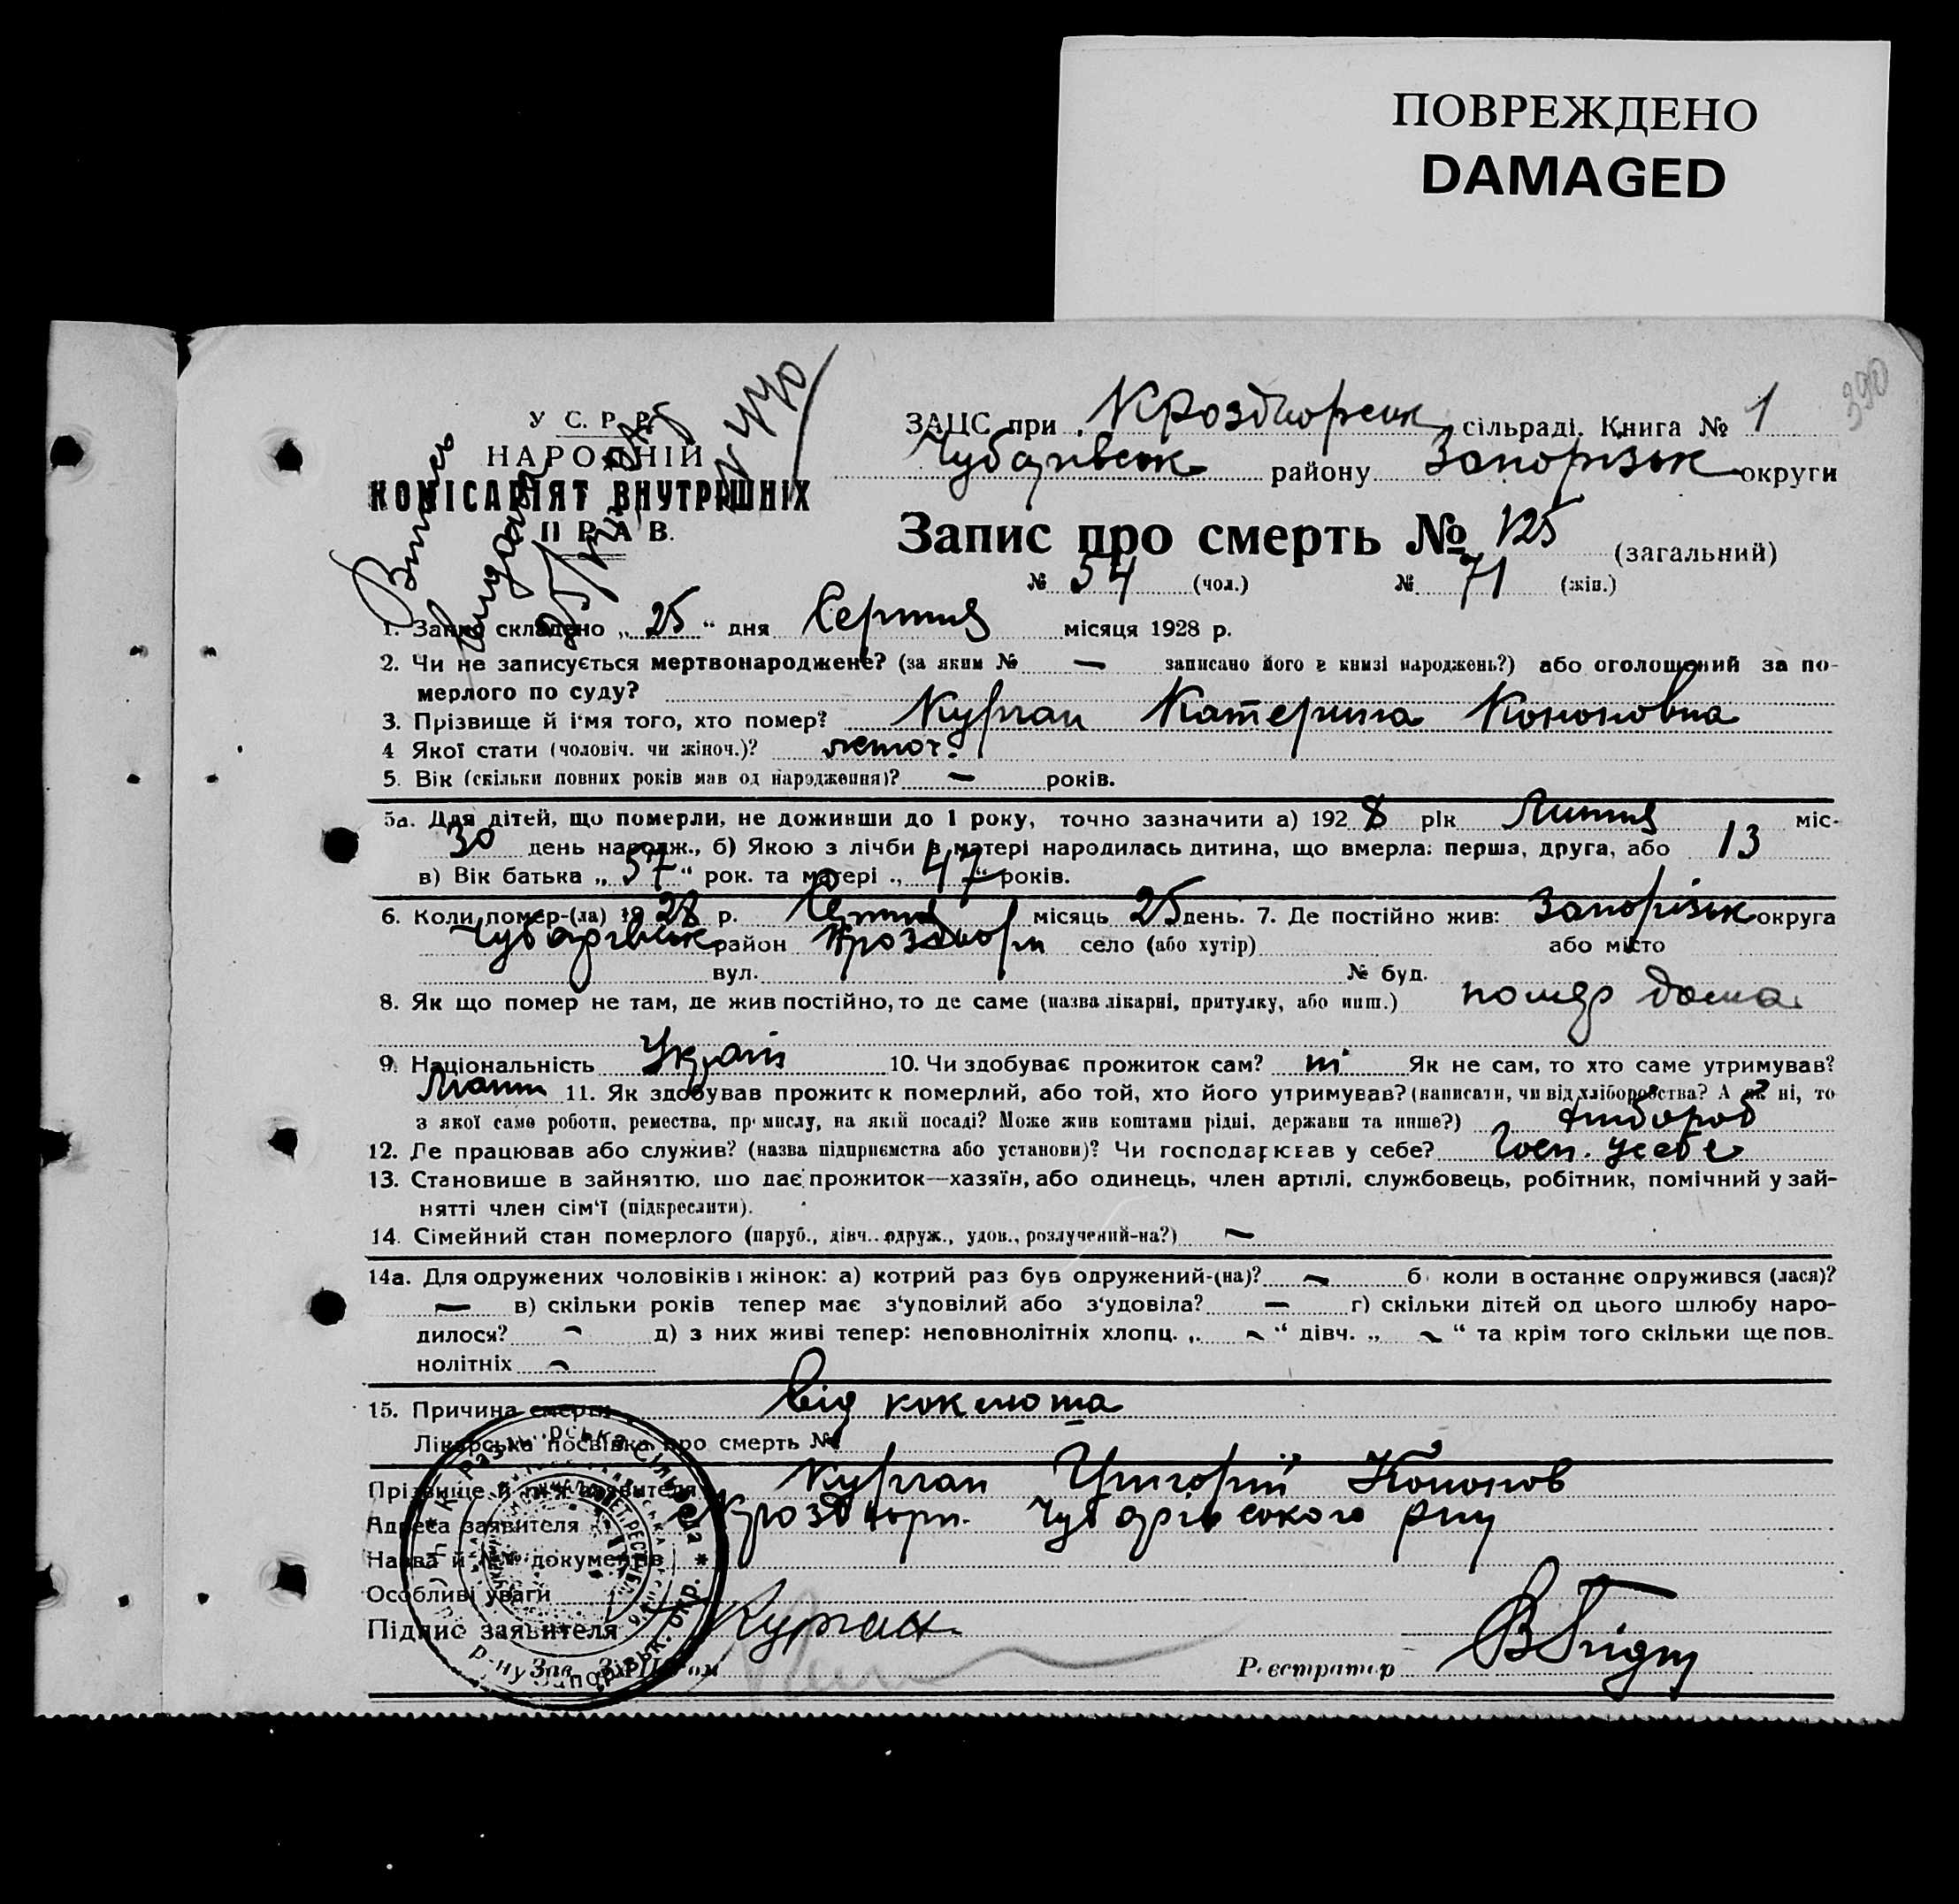 ПОВРЕЖДЕНО
DAMAGED
390
У. С. Р. Р.
НАРОДНІЙ
КОМІСАРІЯТ ВНУТРІШНІХ
ПРАВ.
Витяг видано
ЗАЦС при Кроздторськ сільраді. Книга № 1
Чубарівськ району Запорізьк округи
Запис про смерть № 125 (загальний)
№ 54 (чол.) № 71 (жін.)
1. Запис складено „ 25 “ дня Серпня місяця 1928 р.
2. Чи не записується мертвонароджене? (за яким № — записано його в книзі народжень?) або оголошений за по-
мерлого по суду?
3. Прізвище й ім'я того, хто помер? Курган Катерина Кононовна
4 Якої стати (чоловіч. чи жіноч.)? жіноч.
5. Вік (скільки повних років мав од народження)? — років.
5а. Для дітей, що померли, не доживши до 1 року, точно зазначити а) 192 8 рік Липня міс-
30 день народж., б) Якою з лічби в матері народилась дитина, що вмерла: перша, друга, або 13
в) Вік батька „ 57 “ рок. та матері „ 47 “ років.
6. Коли помер-(ла) 19 28 р. Серпня місяць 25 день. 7. Де постійно жив: Запорізьк округа
Чубарівськ район Кроздори село (або хутір) або місто
вул. № буд.
8. Як що помер не там, де жив постійно, то де саме (назва лікарні, притулку, або инш.) помер дома
9. Національність Україн 10. Чи здобуває прожиток сам? ні Як не сам, то хто саме утримував?
11. Як здобував прожиток померлий, або той, хто його утримував? (написати, чи від хліборобства? А як ні, то
з якої саме роботи, ремества, промислу, на якій посаді? Може жив коштами рідні, держави та инше?) хлібороб
12. Де працював або служив? (назва підприємства або установи)? Чи господарював у себе? Госп. у себе
13. Становище в зайняттю, що дає прожиток—хазяїн, або одинець, член артілі, службовець, робітник, помічний у зай-
нятті член сім'ї (підкреслити).
14. Сімейний стан померлого (паруб., дівч., одруж., удов., розлучений-на?) —
14а. Для одружених чоловіків і жінок: а) котрий раз був одружений-(на)? — б коли в останнє одружився (лася)?
— в) скільки років тепер має з'удовілий або з'удовіла? — г) скільки дітей од цього шлюбу наро-
дилося? — д) з них живі тепер: неповнолітніх хлопц. „ — “ дівч. „ — “ та крім того скільки ще пов-
нолітніх —
15. Причина смерти від коклюша
Лікарська посвідка про смерть №
Прізвище й ім'я заявителя Курган Григорій Кононов
Адреса заявителя Чубарівського р-ну
Назва й №№ документів
Особливі уваги
Підпис заявителя Курган
Зав. ЗАЦС'ом Реєстратор